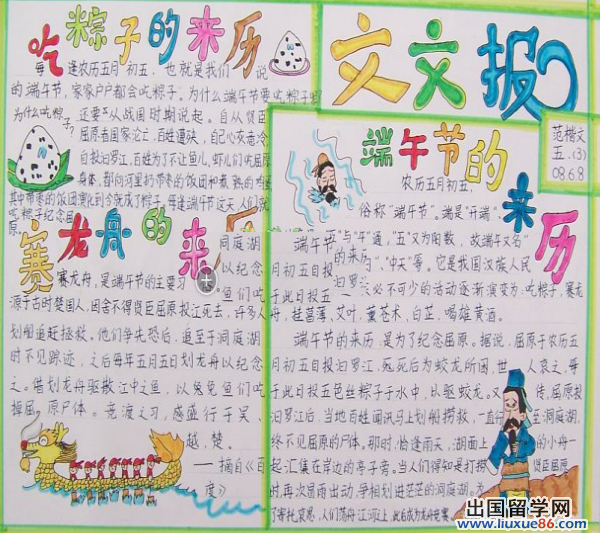 吃粽子的来历
每逢农历五月初五，也就是我们说
的端午节，家家户户都会吃粽子。为什么端午节要吃粽子
为什么吃粽子？还要从战国时期说起。自从贤臣
屈原者国家沦亡，百姓遭殃，自己心灰意冷
自投汨罗江，百姓为了不让鱼儿，虾儿们吃屈原
身体，都向河里扔带枣的饭团和煮熟的鸡
其中带枣的饭团演化到今就成了粽子。每逢端午节这天人们就
吃粽子纪念屈
原。
赛龙舟的来历
赛龙舟，是端午节的主要习
源于古时楚国人，因舍不得贤臣屈原投江死去，许多人
划船追赶拯救。他们争先恐后，追至于洞庭湖
时不见踪迹，之后每年五月五日划龙舟以纪念
之。借划龙舟驱散江中之鱼，以免鱼们吃
掉屈原尸体。竞渡之习，盛行于吴、
越、楚。
——摘自《百
度》
洞庭湖
以纪念
鱼们吃
文文报
范楷文
五.(3)
08.6.8
端午节的来历
农历五月初五，
俗称"端午节"，端是"开端"、
"与"午"通，"五"又为阳数，故端午又名"
"、"中天"等。它是我国汉族人民
必不可少的活动逐渐演变为：吃粽子，赛龙
舟，挂菖蒲，艾叶，薰苍术，白芷，喝雄黄酒。
端午节
的来历
月初五自投
汨罗
于此日投五
端午节的来历，是为了纪念屈原。据说，屈原于农历五
月初五自投汨罗江，死死后为蛟龙所困，世人哀之，每
于此日投五色丝粽子于水中，以驱蛟龙。又传，屈原投
汨罗江后，当地百姓闻讯马上划船捞救，一直行至洞庭湖，
终不见屈原的尸体。那时，恰逢雨天，湖面上的小舟一
起汇集在岸边的亭子旁。当人们得知是打捞贤臣屈原
时，再次冒雨出动，争相划进茫茫的洞庭湖。为
了寄托哀思，人们荡舟江河上，此后成为龙舟竞赛
出国留学网
www.liuxue86.com